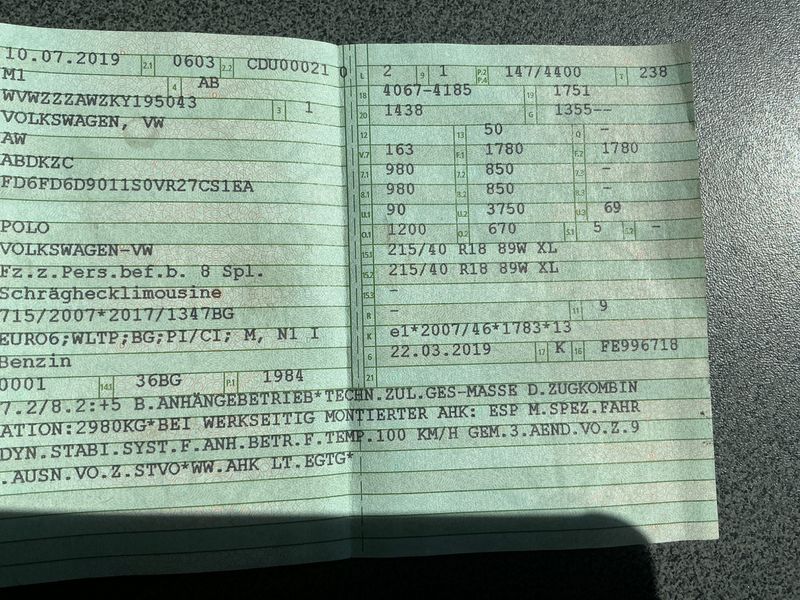 10.07.2019 2.1 0603 2.2 CDU00021 0
M1 4 AB
WVWZZZAWZKY195043 3 1
VOLKSWAGEN, VW
AW
ABDKZC
FD6FD6D9011S0VR27CS1EA
POLO
VOLKSWAGEN-VW
Fz.z.Pers.bef.b. 8 Spl.
Schräghecklimousine
715/2007*2017/1347BG
EURO6;WLTP;BG;PI/CI; M, N1 I
Benzin
0001 14.1 36BG P.1 1984
L 2 9 1 P.2 P.4 147/4400 T 238
18 4067-4185 19 1751
20 1438 G 1355--
12 13 50 Q -
V.7 163 F.1 1780 F.2 1780
7.1 980 7.2 850 7.3 -
8.1 980 8.2 850 8.3 -
U.1 90 U.2 3750 U.3 69
O.1 1200 O.2 670 S.1 5 S.2 -
15.1 215/40 R18 89W XL
15.2 215/40 R18 89W XL
15.3 -
R - 11 9
K e1*2007/46*1783*13
6 22.03.2019 17 K 16 FE996718
21
7.2/8.2:+5 B.ANHÄNGEBETRIEB*TECHN.ZUL.GES-MASSE D.ZUGKOMBIN
ATION:2980KG*BEI WERKSEITIG MONTIERTER AHK: ESP M.SPEZ.FAHR
DYN.STABI.SYST.F.ANH.BETR.F.TEMP.100 KM/H GEM.3.AEND.VO.Z.9
.AUSN.VO.Z.STVO*WW.AHK LT.EGTG*